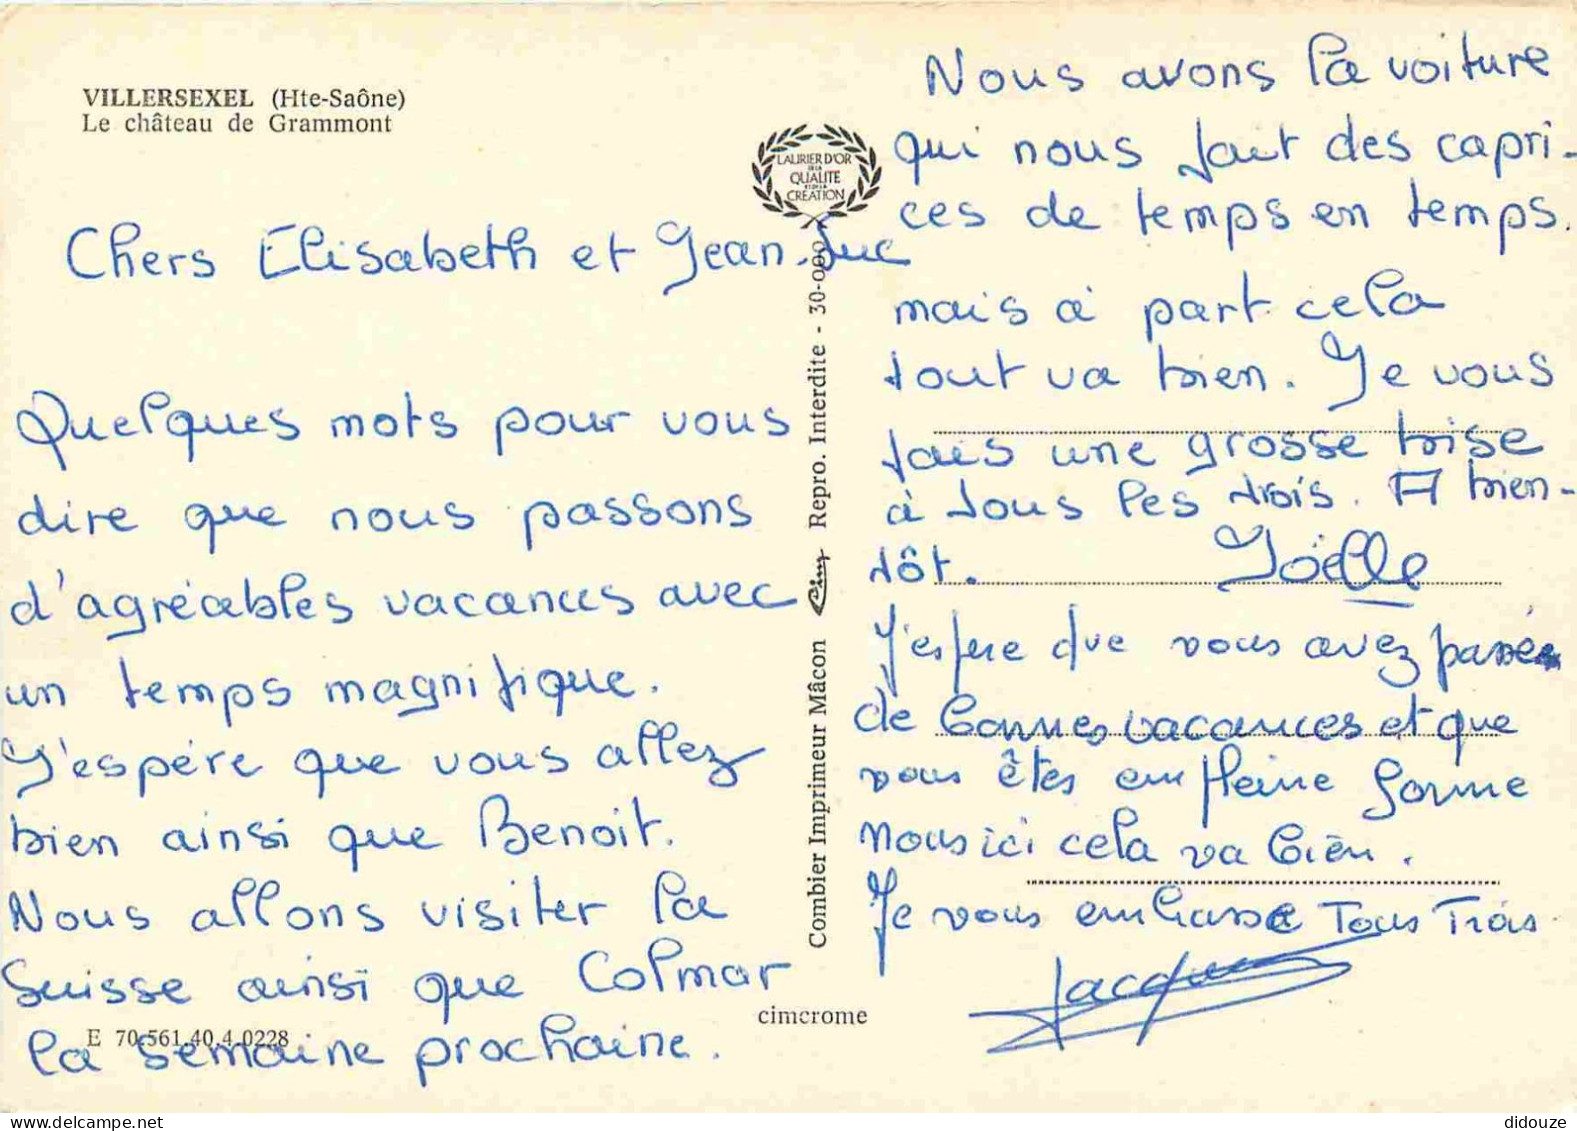 VILLERSEXEL (Hte-Saône)
Le château de Grammont
Chers Elisabeth et Jean-Luc
Quelques mots pour vous
dire que nous passons
d'agréables vacances avec
un temps magnifique.
J'espère que vous allez
bien ainsi que Benoit.
Nous allons visiter la
Suisse ainsi que Colmar
la semaine prochaine.
E 70.561.40.4.0228
LAURIER D'OR
DE LA
QUALITE
ET DE LA
CREATION
Combier Imprimeur Mâcon Cim Repro. Interdite - 30-000
cimcrome
Nous avons la voiture
qui nous fait des capri-
ces de temps en temps.
mais à part cela
tout va bien. Je vous
fais une grosse bise
à tous les trois. A bien-
tôt. Joëlle
J'espere que vous avez passé
de bonnes vacances et que
vous êtes en pleine forme
Nous ici cela va bien.
Je vous embrasse Tous Trois
Jacques
didouze